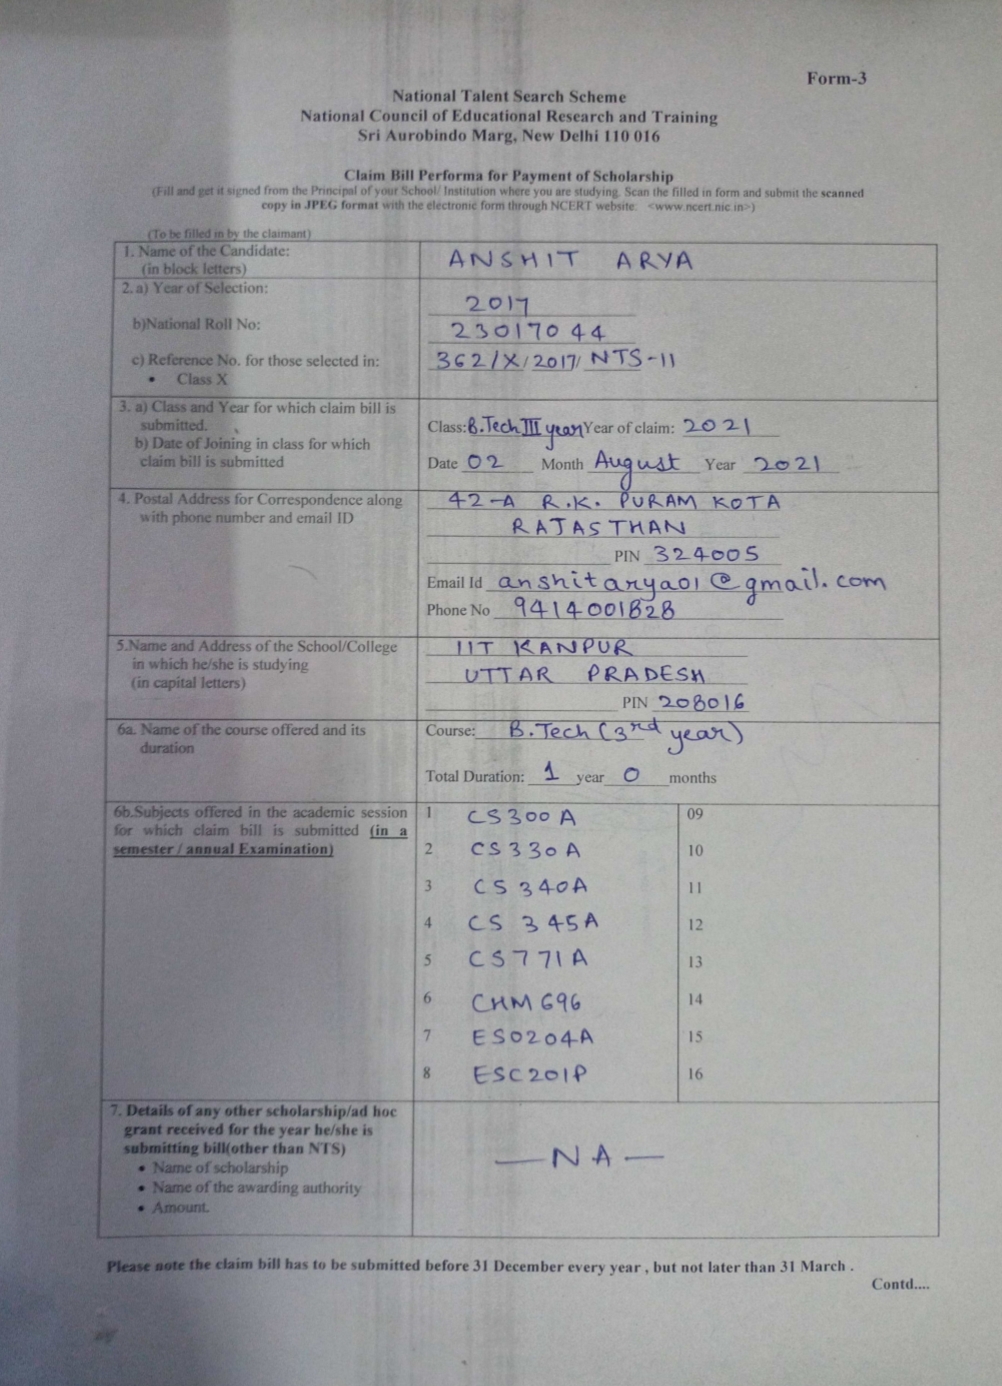 Form-3
National Talent Search Scheme
National Council of Educational Research and Training
Sri Aurobindo Marg, New Delhi 110 016
Claim Bill Performa for Payment of Scholarship
(Fill and get it signed from the Principal of your School/ Institution where you are studying. Scan the filled in form and submit the scanned
copy in JPEG format with the electronic form through NCERT website. <www.ncert.nic.in>)
(To be filled in by the claimant)
1. Name of the Candidate:
(in block letters)
ANSHIT ARYA
2. a) Year of Selection:
2017
b)National Roll No:
230170 44
c) Reference No. for those selected in:
• Class X
362/X/2017/ NTS-11
3. a) Class and Year for which claim bill is
submitted.
Class: B.Tech III year Year of claim: 2021
b) Date of Joining in class for which
claim bill is submitted
Date 02 Month August Year 2021
4. Postal Address for Correspondence along
with phone number and email ID
42-A R.K. PURAM KOTA
RAJASTHAN
PIN 324005
Email Id anshitarya01@gmail.com
Phone No 9414001828
5.Name and Address of the School/College
in which he/she is studying
(in capital letters)
IIT KANPUR
UTTAR PRADESH
PIN 208016
6a. Name of the course offered and its
duration
Course: B.Tech (3rd year)
Total Duration: 1 year 0 months
6b.Subjects offered in the academic session
for which claim bill is submitted (in a
semester / annual Examination)
1 CS300A 09
2 CS330A 10
3 CS340A 11
4 CS 345A 12
5 CS771A 13
6 CHM696 14
7 ESO204A 15
8 ESC201P 16
7. Details of any other scholarship/ad hoc
grant received for the year he/she is
submitting bill(other than NTS)
• Name of scholarship
• Name of the awarding authority
• Amount.
— NA —
Please note the claim bill has to be submitted before 31 December every year , but not later than 31 March .
Contd....